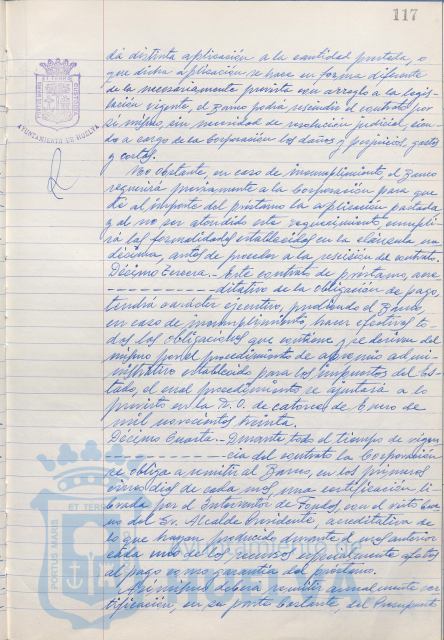 117
PORTUS MARIS
ET TERRE
CUSTODIA
AYUNTAMIENTO DE HUELVA
dá distinta aplicación a la cantidad prestada, o
que dicha aplicación se hace en forma diferente
de la necesariamente prevista con arreglo a la legis-
lación vigente, el Banco podrá rescindir el contrato por
si mismo, sin necesidad de resolución judicial, sien-
do a cargo de la Corporación los daños y perjuicios, gastos
y costas.
No obstante, en caso de incumplimiento el Banco
requerirá previamente a la Corporación para que
dé al importe del préstamo la aplicación pactada
y al no ser atendido este requerimiento, cumpli-
rá las formalidades establecidas en la cláusula un-
décima, antes de proceder a la rescisión del contrato.
Décimo tercera.- Este contrato de préstamo, acre-
ditativo de la obligación de pago,
tendrá carácter ejecutivo, pudiendo el Banco
en caso de incumplimiento, hacer efectivas to-
das las obligaciones que contiene y se deriven del
mismo por el procedimiento de apremio admi-
nistrativo establecido para los impuestos del Es-
tado, el cual procedimiento se ajustará a lo
previsto en la R. O. de catorce de Enero de
mil novecientos treinta.
Décimo Cuarta.- Durante todo el tiempo de vigen-
cia del contrato la Corporación
se obliga a remitir al Banco, en los primeros
cinco días de cada mes una certificación li-
brada por el Interventor de Fondos, con el visto bue-
no del Sr. Alcalde Presidente, acreditativa de
lo que hayan producido durante el mes anterior
cada uno de los recursos especialmente afectos
al pago como garantía del préstamo.
Así mismo deberá remitir anualmente cer-
tificación, en su parte bastante, del Presupuesto
ET TERRE
PORTUS MARIS
HUELVA